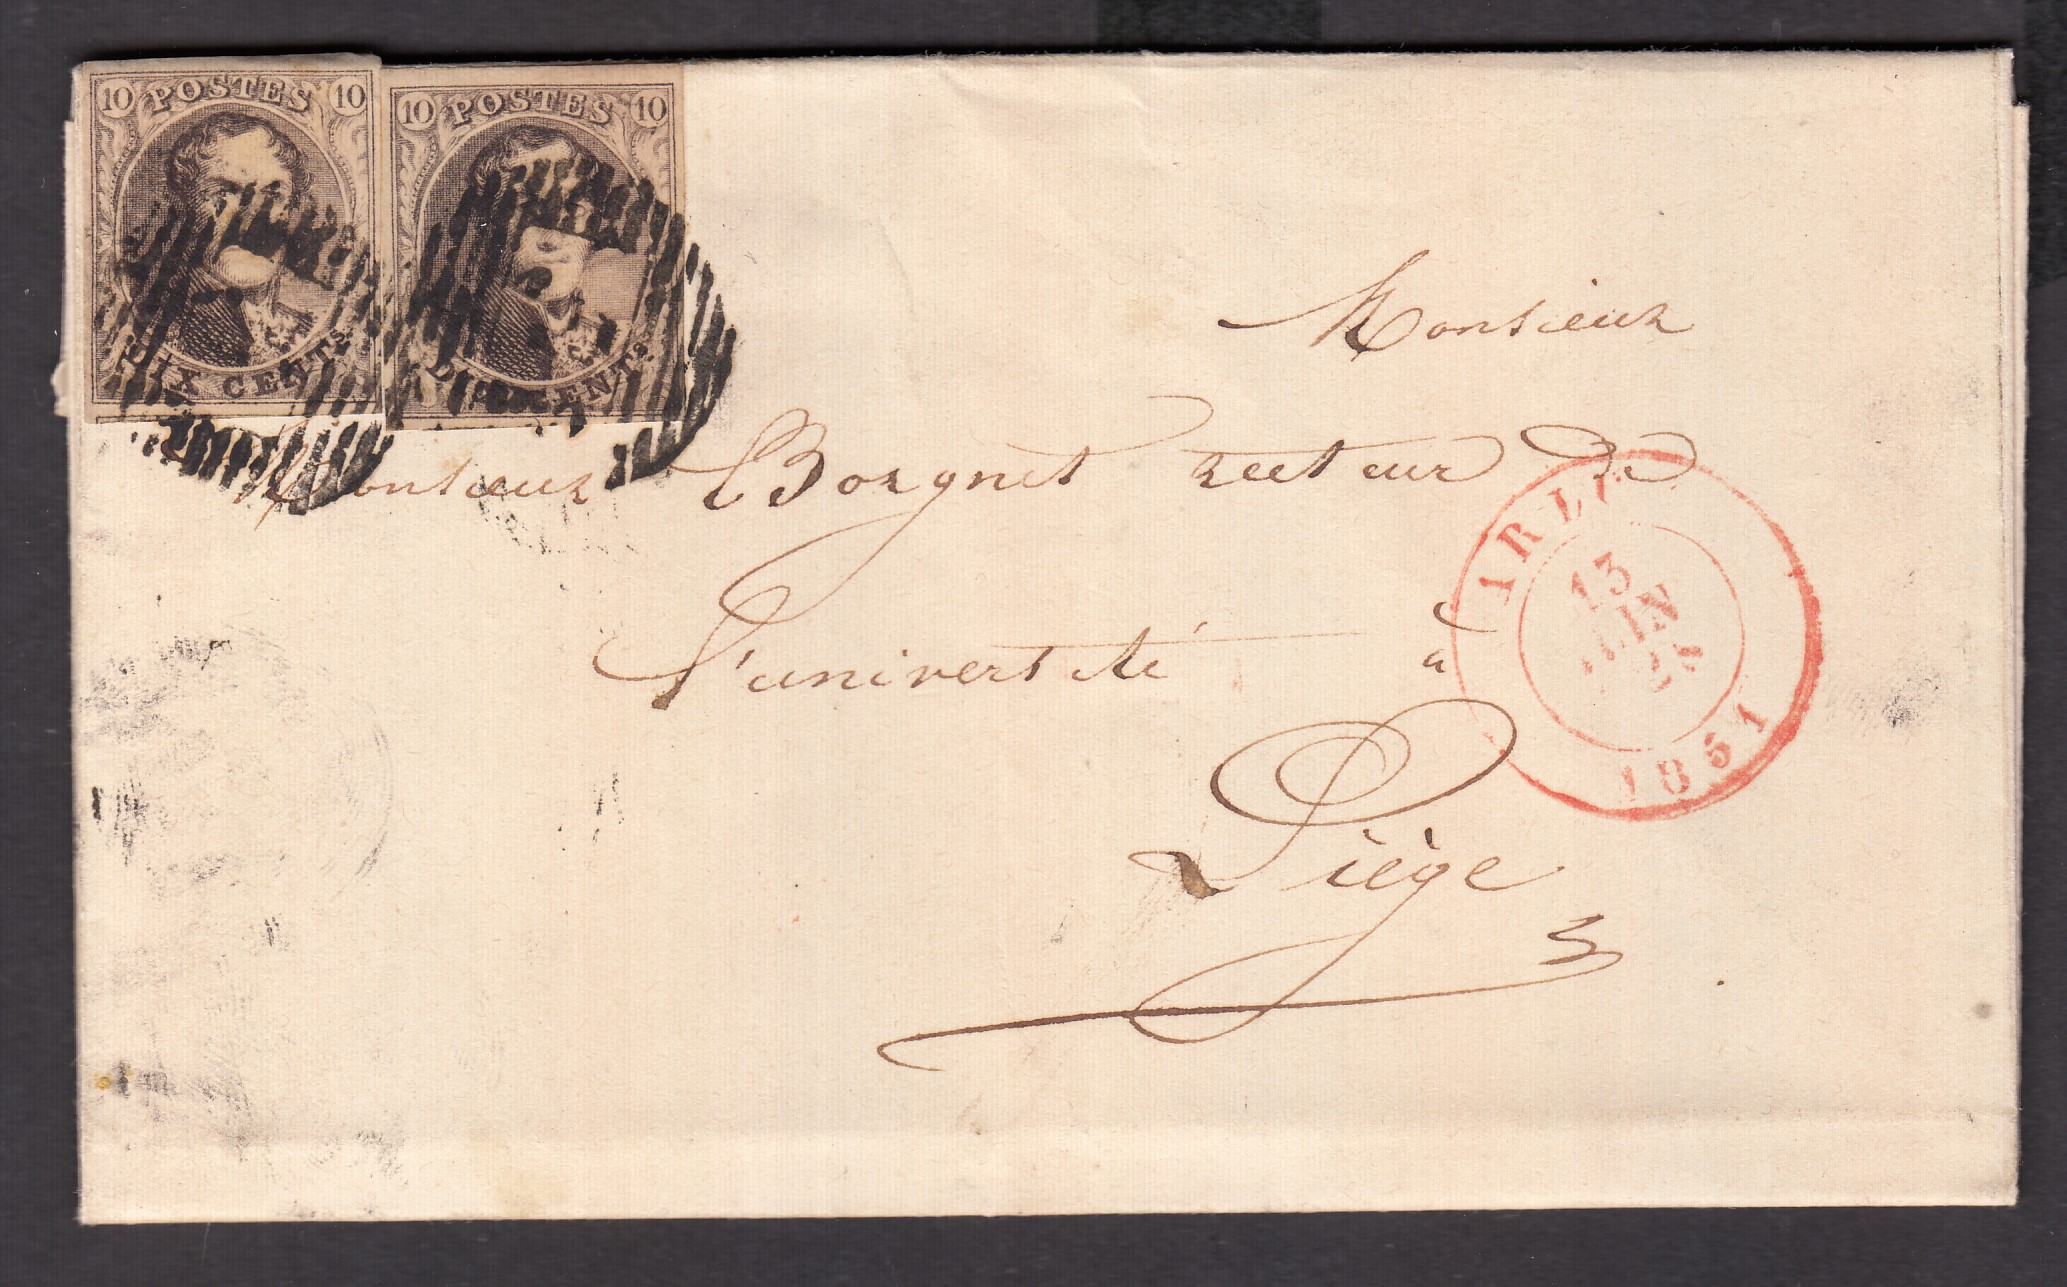 10 POSTES 10
DIX CENTs
10 POSTES 10
DIX CENTs
Monsieur
Monsieur Borgnet recteur de
l'université à
Liège
ARL
13
JUIN
1851